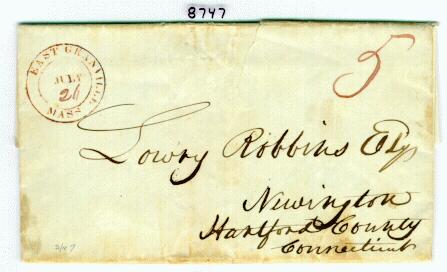 8747
EAST GRANVILLE
JULY
26
MASS
5
Lowry Robbins Esq
Newington
Hartford County
Connecticut